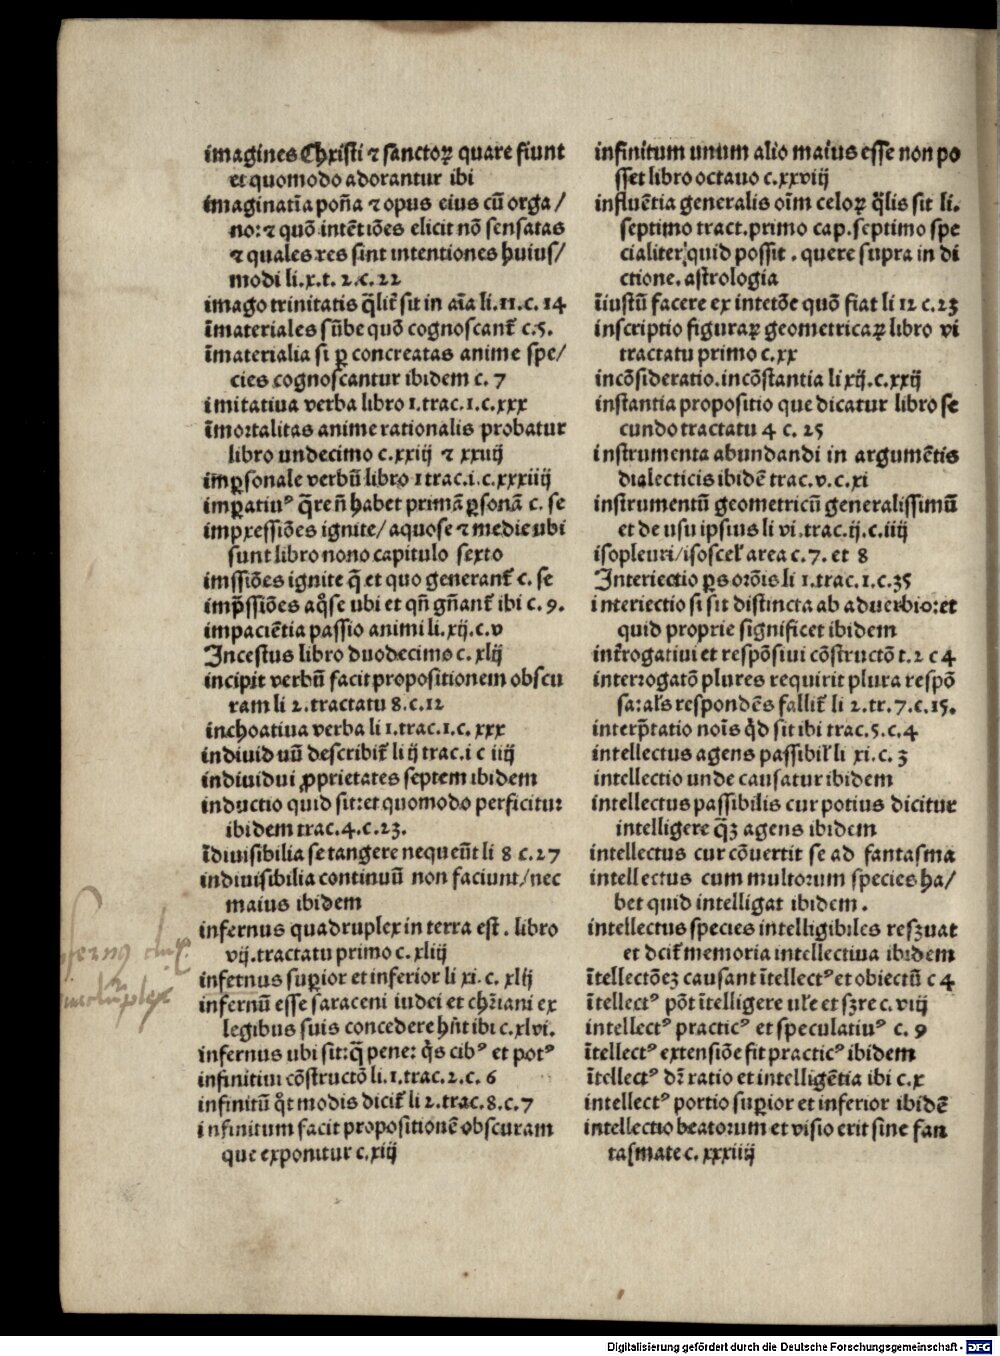 imagines Christi ⁊ sanctoꝝ quare fiunt
et quomodo adorantur ibi
imaginatīa poña ⁊ opus eius cū orga/
no: ⁊ quō intētiōes elicit nō sensatas
⁊ quales res sint intentiones huius/
modi li.x.t. 2.c. 22
imago trinitatis q̄lit̃ sit in aīa li.11.c. 14
īmateriales sūbe quō cognoscant̃ c.5.
īmaterialia si ꝑ concreatas anime spe/
cies cognoscantur ibidem c. 7
imitatiua verba libro 1.trac.1.c.xxx
īmortalitas anime rationalis probatur
libro undecimo c.xxiij ⁊ xxuij
imꝑsonale verbū libro 1 trac.i.c.xxxiiij
imꝑatiuꝰ q̄re ñ habet primā ꝑsonā c. se
impressiões ignite/ aquose ⁊ medie ubi
sunt libro nono capitulo sexto
imssiões ignite q̄ et quo generant̃ c. se
imp̄ssiões aq̊se ubi et qñ gñant̃ ibi c. 9.
impaciētia passio animi li.xij.c.v
Incestus libro duodecimo c.xlij
incipit verbū facit propositionem obscu
ram li 2.tractatu 8.c.12
inchoatiua verba li 1.trac.1.c.xxx
indiuiduū describit̃ li ij trac.i c iiij
indiuidui ꝓprietates septem ibidem
inductio quid sit: et quomodo perficitur
ibidem trac.4.c.23.
īdiuisibilia se tangere nequeūt li 8 c.27
indiuisibilia continuū non faciunt/nec
maius ibidem
infernus quadruplex in terra est. libro
vij.tractatu primo c.xliij
infetnus suꝑior et inferior li xi.c. xliij
infernū esse saraceni iudei et chr̄iani ex
legibus suis concedere hñt ibi c.xlvi.
infernus ubi sit: q̄ pene: q̊s cibꝰ et potꝰ
infinitiui cōstructō li.1.trac.2.c. 6
infinitū q̊t modis dicit̃ li 2.trac.8.c.7
infinitum facit propositionē obscuram
que exponitur c.xiij
infinitum unum alio maius esse non po
sset libro octauo c.xxviij
influētia generalis oīm celoꝝ q̄lis sit li.
septimo tract.primo cap.septimo spe
cialiter quid possit. quere supra in di
ctione. astrologia
īiustū facere ex intetōe quō fiat li 12 c.23
inscriptio figuraꝝ geometricaꝝ libro vi
tractatu primo c.xx
incōsideratio.incōstantia li xij.c.xxij
instantia propositio que dicatur libro se
cundo tractatu 4 c. 25
instrumenta abundandi in argumētis
dialecticis ibidē trac.v.c.xi
instrumentū geometricū generalissimū
et de usu ipsius li vi.trac.ij.c.iiij
isopleuri/isoscel̃ area c.7. et 8
Interiectio ꝑs orōis li 1.trac.1.c.35
interiectio si sit distincta ab aduerbio: et
quid proprie significet ibidem
int̃rogatiui et respōsiui cōstructō t.2 c 4
interrogatō plures requirit plura respō
sa: al̃s respondēs fallit̃ li 2.tr.7.c.15.
interp̄tatio noīs q̊d sit ibi trac.5.c.4
intellectus agens passibil̃ li xi.c.3
intellectio unde causatur ibidem
intellectus passibilis cur potius dicitur
intelligere q̄ꝫ agens ibidem
intellectus cur cōuertit se ad fantasma
intellectus cum multorum species ha/
bet quid intelligat ibidem.
intellectus species intelligibiles resꝫuat
et dcit̃ memoria intellectiua ibidem
ītellectōeꝫ causant ītellectꝰ et obiectū c 4
ītellectꝰ pōt ītelligere ul̃e et sꝫre c.viij
intellectꝰ practicꝰ et speculatiuꝰ c. 9
ītellectꝰ extensiōe fit practicꝰ ibidem
ītellectꝰ dr̄ ratio et intelligētia ibi c.x
intellectꝰ portio suꝑior et inferior ibidē
intellectio beatorum et visio erit sine fan
tasmate c.xxxiiij
Digitalisierung gefördert durch die Deutsche Forschungsgemeinschaft - DFG